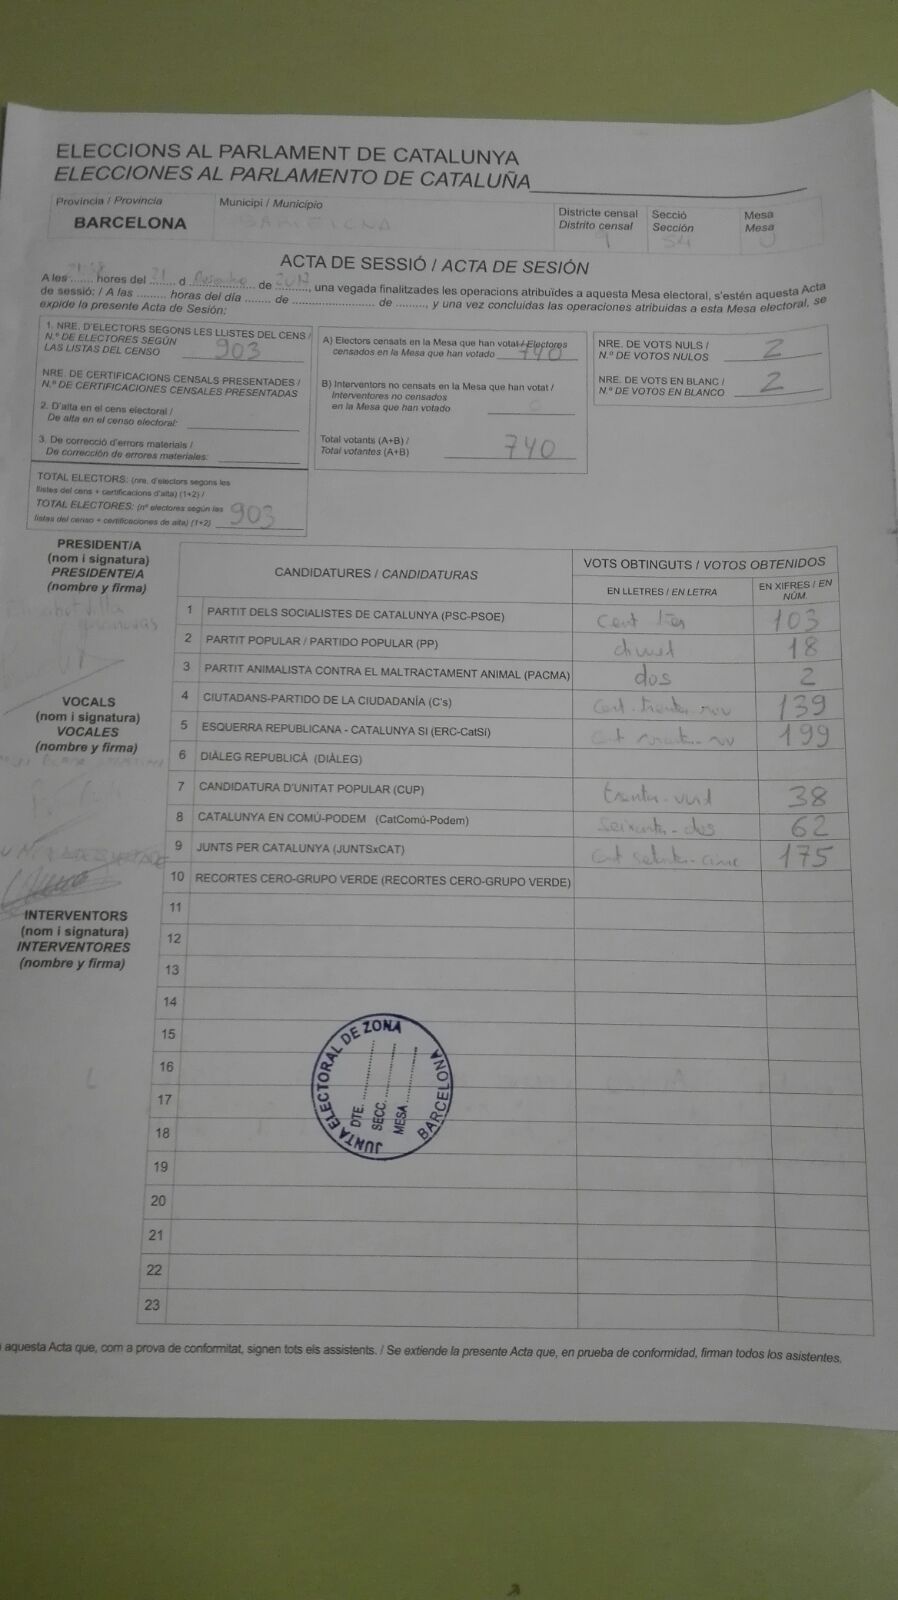 ELECCIONS AL PARLAMENT DE CATALUNYA
ELECCIONES AL PARLAMENTO DE CATALUÑA
Provincia / Provincia
BARCELONA
Municipi / Municipio
BARCELONA
Districte censal
Distrito censal
9
Secció
Sección
54
Mesa
Mesa
U
ACTA DE SESSIÓ / ACTA DE SESIÓN
A les ....... hores del 21 d ................ de 2017, una vegada finalitzades les operacions atribuïdes a aquesta Mesa electoral, s'estén aquesta Acta
de sessió: / A las ......... horas del día ....... de ........................ de ........., y una vez concluidas las operaciones atribuidas a esta Mesa electoral, se
expide la presente Acta de Sesión:
1. NRE. D'ELECTORS SEGONS LES LLISTES DEL CENS /
N.º DE ELECTORES SEGÚN
LAS LISTAS DEL CENSO 903
NRE. DE CERTIFICACIONS CENSALS PRESENTADES /
N.º DE CERTIFICACIONES CENSALES PRESENTADAS
2. D'alta en el cens electoral /
De alta en el censo electoral:
3. De correcció d'errors materials /
De corrección de errores materiales:
TOTAL ELECTORS: (nre. d'electors segons les
llistes del cens + certificacions d'alta) (1+2) /
TOTAL ELECTORES: (nº electores según las
listas del censo + certificaciones de alta) (1+2) 903
A) Electors censats en la Mesa que han votat / Electores
censados en la Mesa que han votado 740
B) Interventors no censats en la Mesa que han votat /
Interventores no censados
en la Mesa que han votado 0
Total votants (A+B) /
Total votantes (A+B) 740
NRE. DE VOTS NULS /
N.º DE VOTOS NULOS 2
NRE. DE VOTS EN BLANC /
N.º DE VOTOS EN BLANCO 2
PRESIDENT/A
(nom i signatura)
PRESIDENTE/A
(nombre y firma)
VOCALS
(nom i signatura)
VOCALES
(nombre y firma)
INTERVENTORS
(nom i signatura)
INTERVENTORES
(nombre y firma)
CANDIDATURES / CANDIDATURAS
VOTS OBTINGUTS / VOTOS OBTENIDOS
EN LLETRES / EN LETRA
EN XIFRES / EN NÚM.
1 PARTIT DELS SOCIALISTES DE CATALUNYA (PSC-PSOE) Cent tres 103
2 PARTIT POPULAR / PARTIDO POPULAR (PP) divuit 18
3 PARTIT ANIMALISTA CONTRA EL MALTRACTAMENT ANIMAL (PACMA) dos 2
4 CIUTADANS-PARTIDO DE LA CIUDADANÍA (C's) cent trenta-nou 139
5 ESQUERRA REPUBLICANA - CATALUNYA SI (ERC-CatSí) cent noranta-nou 199
6 DIÀLEG REPUBLICÀ (DIÀLEG)
7 CANDIDATURA D'UNITAT POPULAR (CUP) trenta-vuit 38
8 CATALUNYA EN COMÚ-PODEM (CatComú-Podem) seixanta-dos 62
9 JUNTS PER CATALUNYA (JUNTSxCAT) cent setanta-cinc 175
10 RECORTES CERO-GRUPO VERDE (RECORTES CERO-GRUPO VERDE)
11
12
13
14
15
16
17
18
19
20
21
22
23
JUNTA ELECTORAL DE ZONA
BARCELONA
DTE.
SECC.
MESA
aquesta Acta que, com a prova de conformitat, signen tots els assistents. / Se extiende la presente Acta que, en prueba de conformidad, firman todos los asistentes.